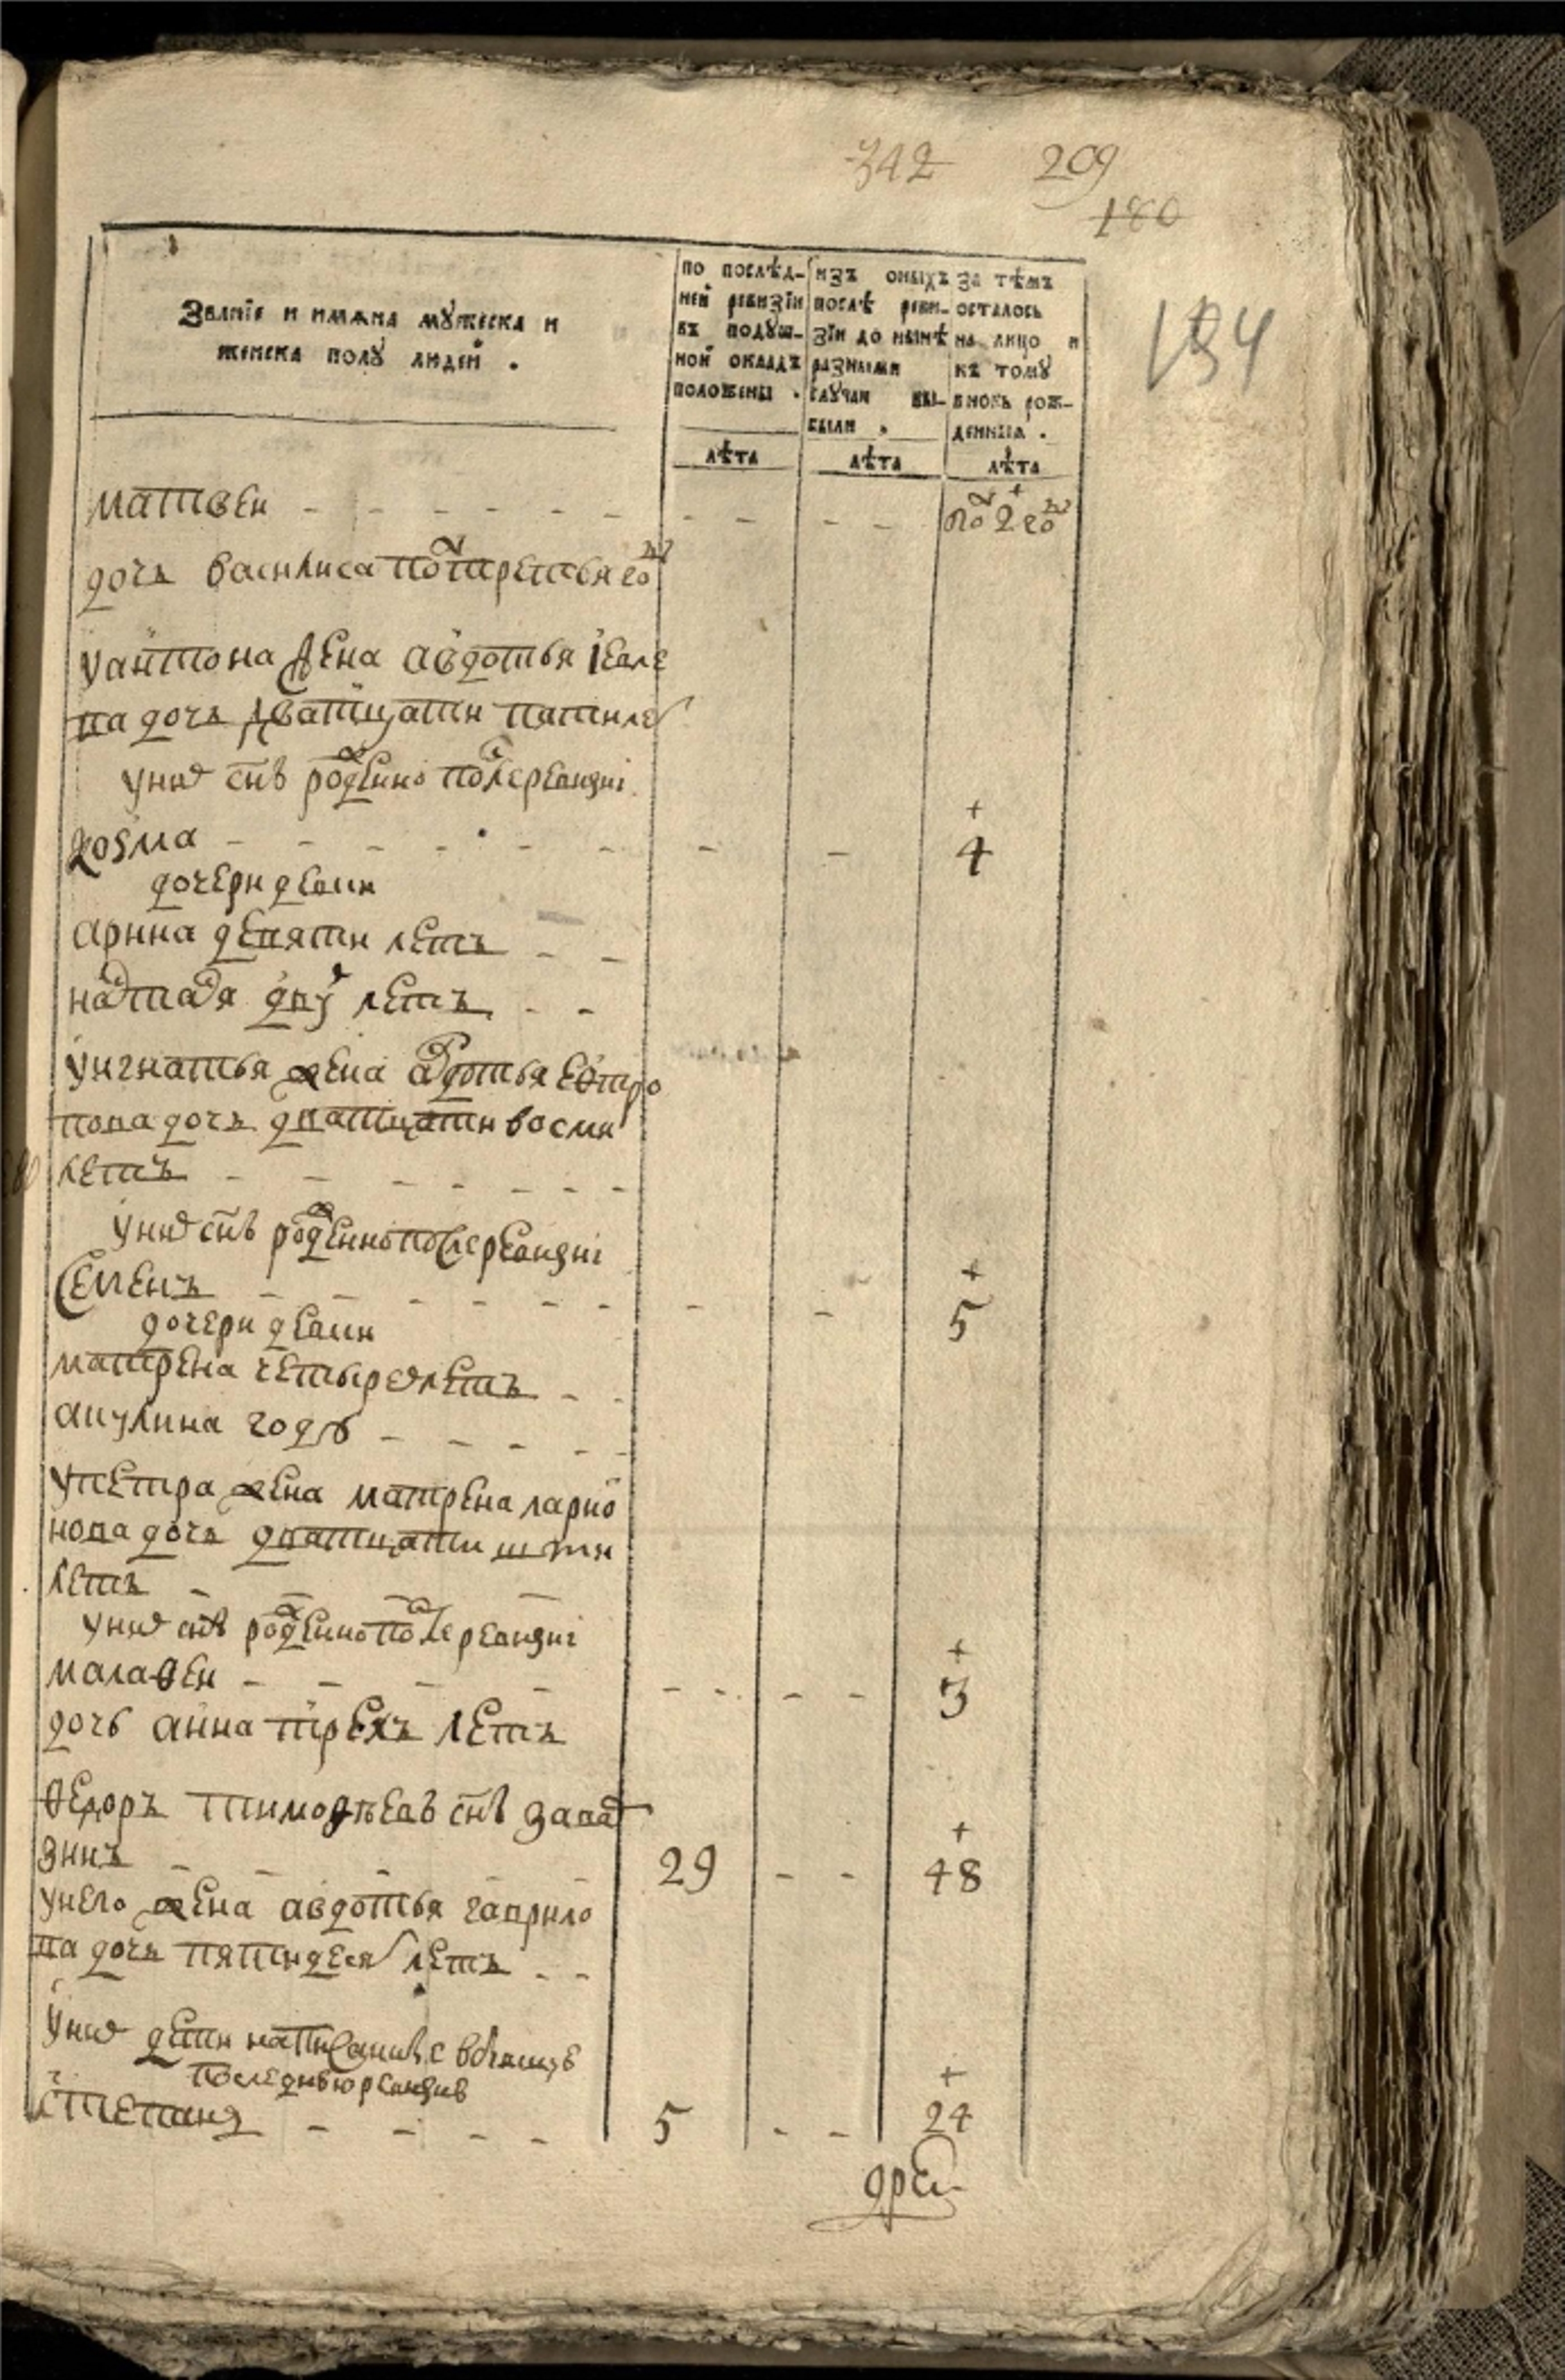 342 209
180
194
Званїе и имѧна мужеска и
женска полу людей .
по послѣд-
ней ревизїи
въ подуш-
ной окладъ
положены .
лѣта
изъ оныхъ
послѣ реви-
зїи до нынѣ
разными
случаи вы-
были .
лѣта
за тѣмъ
осталось
на лицо и
къ тому
вновь рож-
денныя .
лѣта
матвеи - - - - - - - - - - + пол 2 год
дочь василиса полтретья год
у антона жена авдотья иевле
ва дочь дватцати пяти ле
у них снъ рожденно после ревизиї
козма - - - - - - - - + 4
дочери девки
арина девяти летъ - -
настасья дву летъ - -
у игнатья жена авдотья евтро
пова дочь дватцати восми
летъ - - - - - - -
у них снъ рожденно после ревизиї
семенъ - - - - - - - - + 5
дочери девки
матрена четырех летъ - -
акулина годъ - - - - -
у петра жена матрена ларио
нова дочь дватцати шти
летъ - - - -
у них снъ рожденно после ревизиї
малафеи - - - - - - - - + 3
дочь анна трехъ летъ
федоръ тимофѣевъ снъ
зинъ - - - - - 29 - - + 48
у него жена авдотья гаврило
ва дочь пятидеся летъ - -
у них дети написанныя в
последнюю ревизию
степанъ - - - - 5 - - + 24